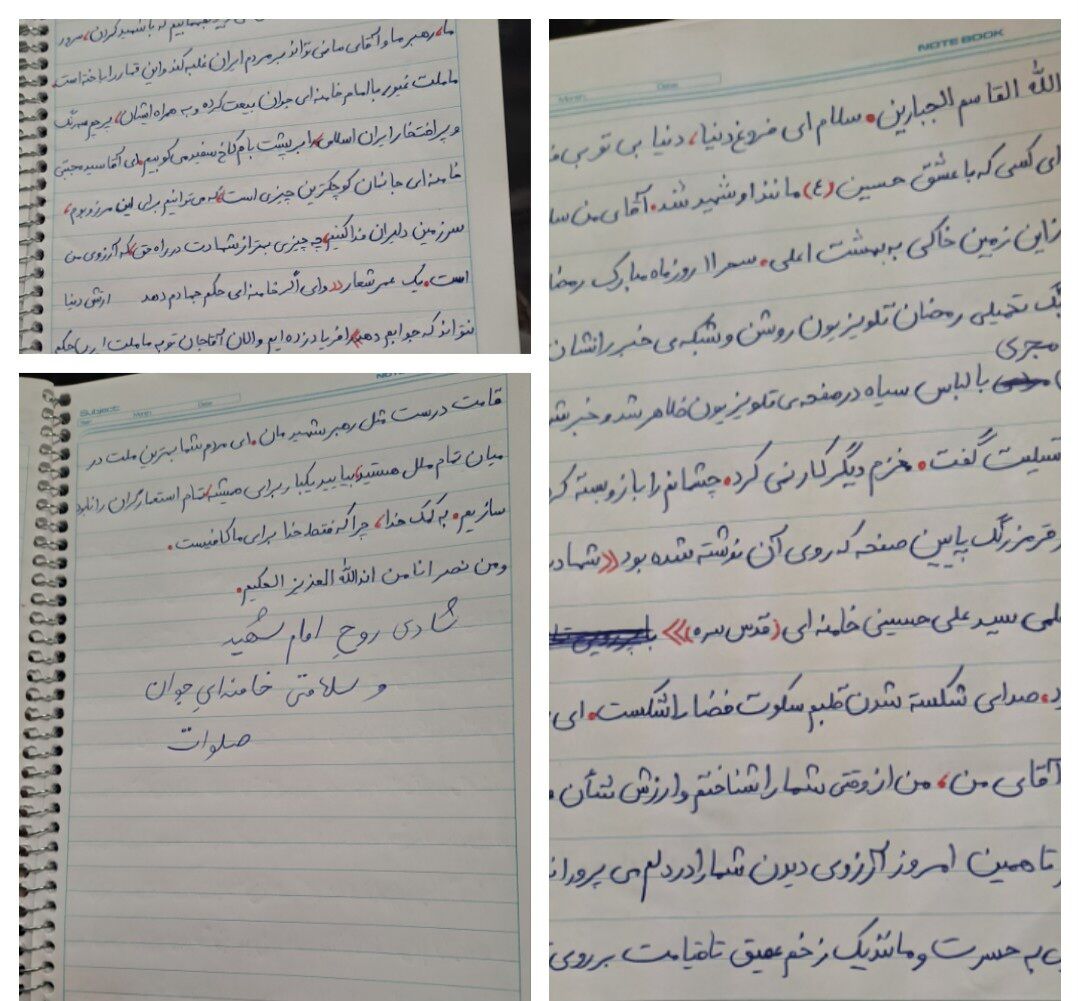 NOTE BOOK
Month:
Date:
الله القاسم الجبارین. سلام ای فروغ دنیا، دنیا بی تو بی
ای کسی که با عشق حسین (ع) مانند او شهید شد. آقای من
از این زمین خاکی به بهشت اعلی. سحر ۱۱ روز ماه مبارک
تخیلی رمضان تلویزیون روشن و شبکه ی خبر را نشان
مجری
با لباس سیاه در صفحه ی تلویزیون ظاهر شد و خبر
تسلیت گفت. مغزم دیگر کار نمی کرد. چشمانم را باز و بسته
قرمز رنگ پایین صفحه که روی آن نوشته شده بود «
سید علی حسینی خامنه ای (قدس سره)»
صدای شکسته شدن قلبم سکوت فضا را شکست. ای
آقای من، من از وقتی شما را شناختم و ارزش شأن
تا همین امروز آرزوی دیدن شما را در دلم می
به حسرت و مانند یک زخم عمیق تا قیامت بر روی
که با شهید کردن، سرور
ما، رهبر ما و آقای ما نمی تواند بر مردم ایران غلبه کند و این قمار را باخته است.
ما ملت غیور با امام خامنه ای جوان بیعت کرده و به همراه ایشان، پرچم سه رنگ
و پر افتخار ایران اسلامی را بر پشت بام کاخ سفید می کوبیم. ای آقا سید مجتبی
خامنه ای جانمان کوچکترین چیزی است که می توانیم برای این مرز و بوم،
سرزمین دلیران فدا کنیم. چه چیزی بهتر از شهادت در راه حق، که آرزوی من
است. یک عمر شعار «وای اگر خامنه ای حکم جهادم دهد ارتش دنیا
نتواند که جوابم دهد» فریاد زده ایم و الان آقاجان تو به ما ملت ایران حکم
NOTE
Subject:
Month
Date
قامت درست مثل رهبر شهیدمان. ای مردم شما بهترین ملت در
میان تمام ملل هستید، بیایید یکبار و برای همیشه تمام استعمارگران را نابود
سازیم. به کمک خدا، چرا که فقط خدا برای ما کافیست.
و من نصر انا من اندالله العزیز الحکیم.
شادی روح امام شهید
و سلامتی خامنه ای جوان
صلوات